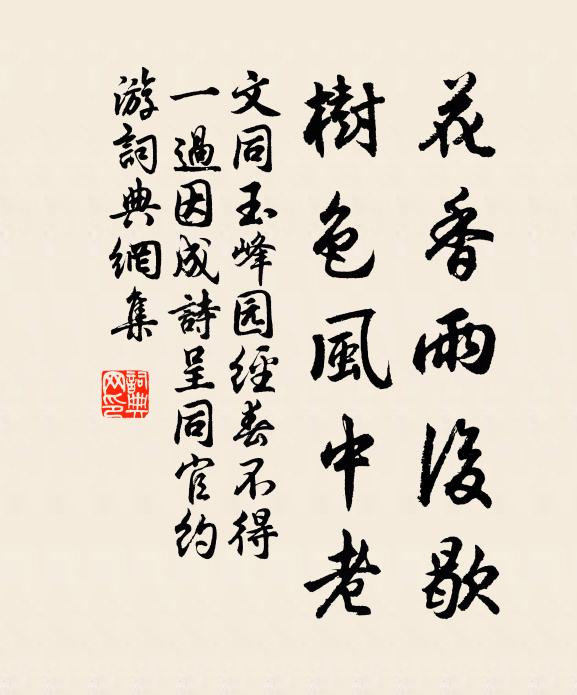 花香雨後歇
樹色風中老
文同玉峰园經春不得
一過因成詩呈同官约
游詞典網集
詞典网印